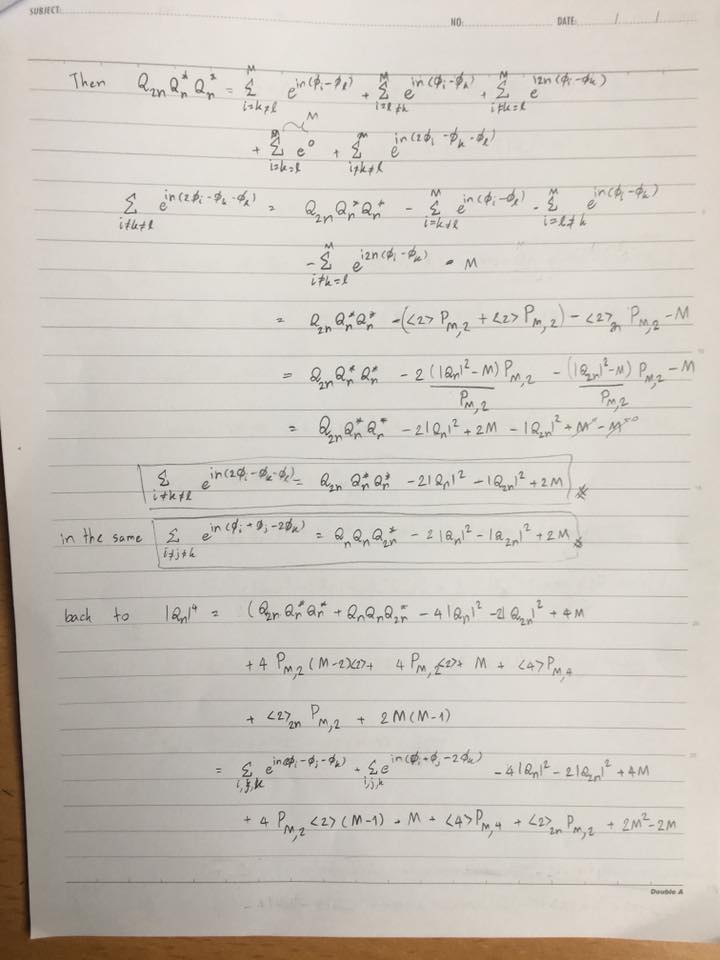 SUBJECT:
NO: DATE: / /
Then Q_{2n} Q_n^* Q_n^* = Σ_{i=k≠l}^{M} e^{in(φ_i-φ_l)} + Σ_{i=l≠k}^{M} e^{in(φ_i-φ_k)} + Σ_{i≠k=l}^{M} e^{i2n(φ_i-φ_k)}
M
+ Σ_{i=k=l}^{M} e^0 + Σ_{i≠k≠l}^{M} e^{in(2φ_i-φ_k-φ_l)}
Σ_{i≠k≠l} e^{in(2φ_i-φ_k-φ_l)} = Q_{2n} Q_n^* Q_n^* - Σ_{i=k≠l}^{M} e^{in(φ_i-φ_l)} - Σ_{i=l≠k}^{M} e^{in(φ_i-φ_k)}
- Σ_{i≠k=l}^{M} e^{i2n(φ_i-φ_k)} - M
= Q_{2n} Q_n^* Q_n^* - (<2> P_{M,2} + <2> P_{M,2}) - <2>_{2n} P_{M,2} - M
= Q_{2n} Q_n^* Q_n^* - 2 (|Q_n|^2 - M)/P_{M,2} P_{M,2} - (|Q_{2n}|^2 - M)/P_{M,2} P_{M,2} - M
= Q_{2n} Q_n^* Q_n^* - 2|Q_n|^2 + 2M - |Q_{2n}|^2 + M - M 0
Σ_{i≠k≠l} e^{in(2φ_i-φ_k-φ_l)} = Q_{2n} Q_n^* Q_n^* - 2|Q_n|^2 - |Q_{2n}|^2 + 2M *
in the same Σ_{i≠j≠k} e^{in(φ_i+φ_j-2φ_k)} = Q_n Q_n Q_{2n}^* - 2|Q_n|^2 - |Q_{2n}|^2 + 2M *
back to |Q_n|^4 = (Q_{2n} Q_n^* Q_n^* + Q_n Q_n Q_{2n}^* - 4|Q_n|^2 - 2|Q_{2n}|^2 + 4M
+ 4 P_{M,2} (M-2)<2> + 4 P_{M,2}<2> + M + <4> P_{M,4}
+ <2>_{2n} P_{M,2} + 2M(M-1)
= Σ_{i,j,k} e^{in(2φ_i-φ_j-φ_k)} + Σ_{i,j,k} e^{in(φ_i+φ_j-2φ_k)} - 4|Q_n|^2 - 2|Q_{2n}|^2 + 4M
+ 4 P_{M,2} <2> (M-1) + M + <4> P_{M,4} + <2>_{2n} P_{M,2} + 2M^2 - 2M
Double A